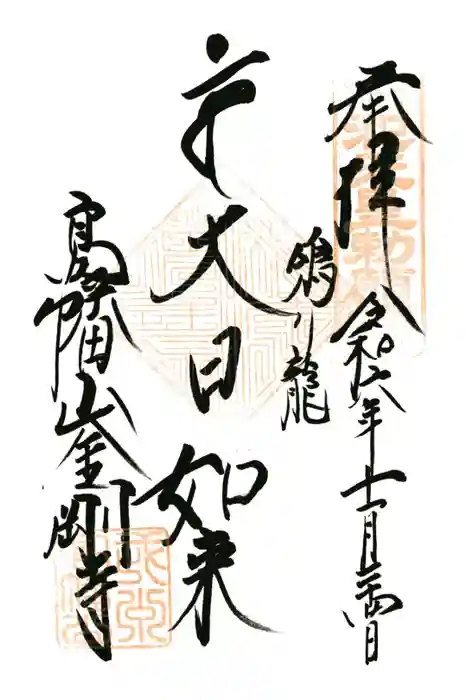 奉拝
令和六年十一月二十四日
鳴り龍
大日如来
高幡山金剛寺